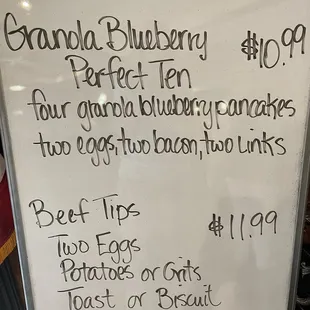 Granola Blueberry $10.99
Perfect Ten
four granola blueberry pancakes
two eggs, two bacon, two Links
Beef Tips $11.99
Two Eggs
Potatoes or Grits
Toast or Biscuit